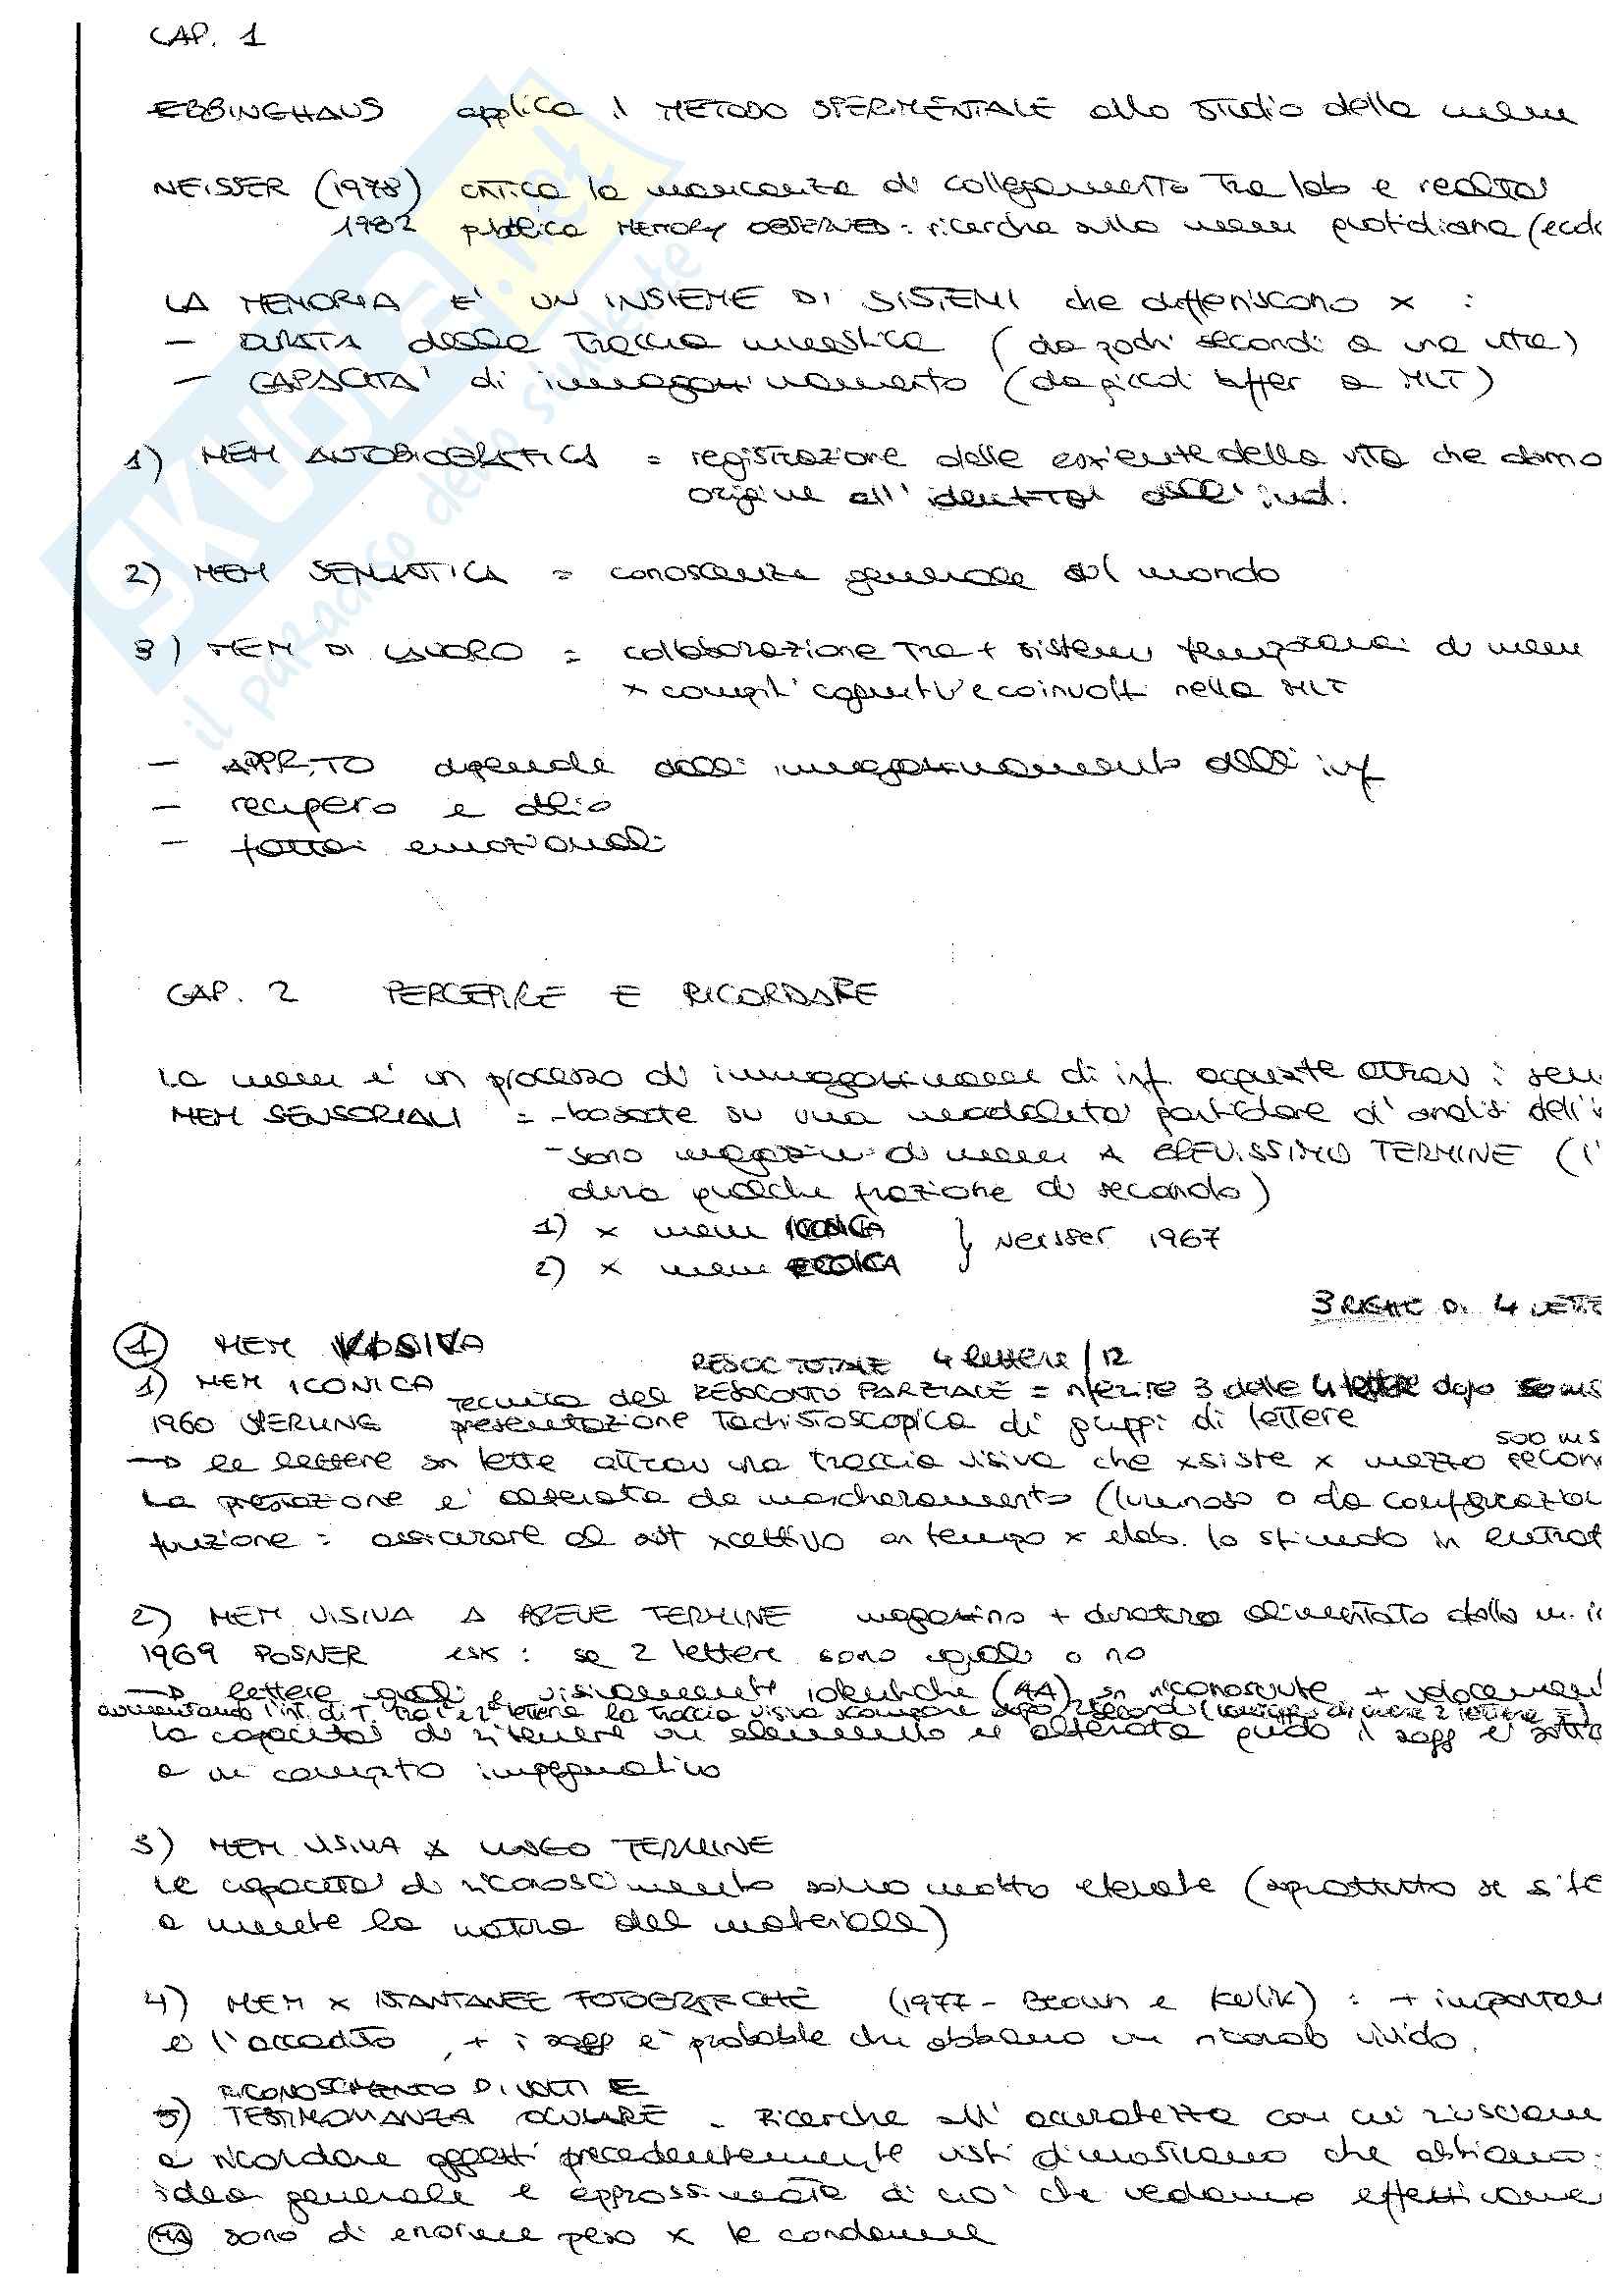 CAP. 1
EBBINGHAUS applica il METODO SPERIMENTALE allo studio della mem
NEISSER (1978) critica la mancanza di collegamento tra lab e realtà
1982 pubblica MEMORY OBSERVED = ricerche sulla mem quotidiana (ecolo
LA MEMORIA E' UN INSIEME DI SISTEMI che differiscono x :
- DURATA della traccia mnestica (da pochi secondi a una vita)
- CAPACITA' di immagazzinamento (da piccoli buffer a MLT)
1) MEM AUTOBIOGRAFICA = registrazione delle esperienze della vita che danno
origine all'identità dell'ind.
2) MEM SEMANTICA = conoscenza generale sul mondo
3) MEM DI LAVORO = collaborazione tra + sistemi temporanei di mem
x compiti cognitivi e coinvolti nella MLT
- APPR.TO dipende dall'immagazzinamento dell'inf
- recupero e oblio
- fattori emozionali
CAP. 2 PERCEPIRE E RICORDARE
La mem è un processo di immagazzinam di inf. acquisite attrav i sen
MEM SENSORIALI = - basate su una modalità particolare di analisi dell'i
- sono magazzini di mem A BREVISSIMO TERMINE (l'
dura qualche frazione di secondo)
1) x mem ICONICA
2) x mem ECOICA } Neisser 1967
3 RIGHE DI 4 LETTE
① MEM VISIVA
RESOC TOTALE 4 lettere / 12
1) MEM ICONICA tecnica del RESOCONTO PARZIALE = riferire 3 delle 4 lettere dopo 50 ms
1960 SPERLING presentazione tachistoscopica di gruppi di lettere
500 ms
→ le lettere sn lette attrav una traccia visiva che xsiste x mezzo secon
La prestazione è alterata da mascheramento (luminoso o da configurazion
funzione : assicurare al sist xcettivo un tempo x elab. lo stimolo in entrat
2) MEM VISIVA A BREVE TERMINE magazzino + duraturo alimentato dalla m. i
1969 POSNER esk : se 2 lettere sono uguali o no
→ lettere uguali e visivamente identiche (AA) sn riconosciute + velocemen
aumentando l'int. di T. tra 1ª e 2ª lettera la traccia visiva scompare dopo 2 secondi
la capacità di ritenere un elemento è alterata quando il sogg è sotto
a un compito impegnativo
3) MEM VISIVA X LUNGO TERMINE
le capacità di riconoscimento sono molto elevate (soprattutto se si te
a mente la natura del materiale)
4) MEM X ISTANTANEE FOTOGRAFICHE (1977 - Brown e Kulik) : + importan
è l'accaduto, + i sogg è probabile che abbiano un ricordo vivido.
RICONOSCIMENTO DI VOLTI E
5) TESTIMONIANZA OCULARE - Ricerche sull'accuratezza con cui riusciam
a ricordare oggetti precedentemente visti dimostrano che abbiamo
idea generale e approssimata di ciò che vediamo effettivame
MA sono di enorme peso x le condanne